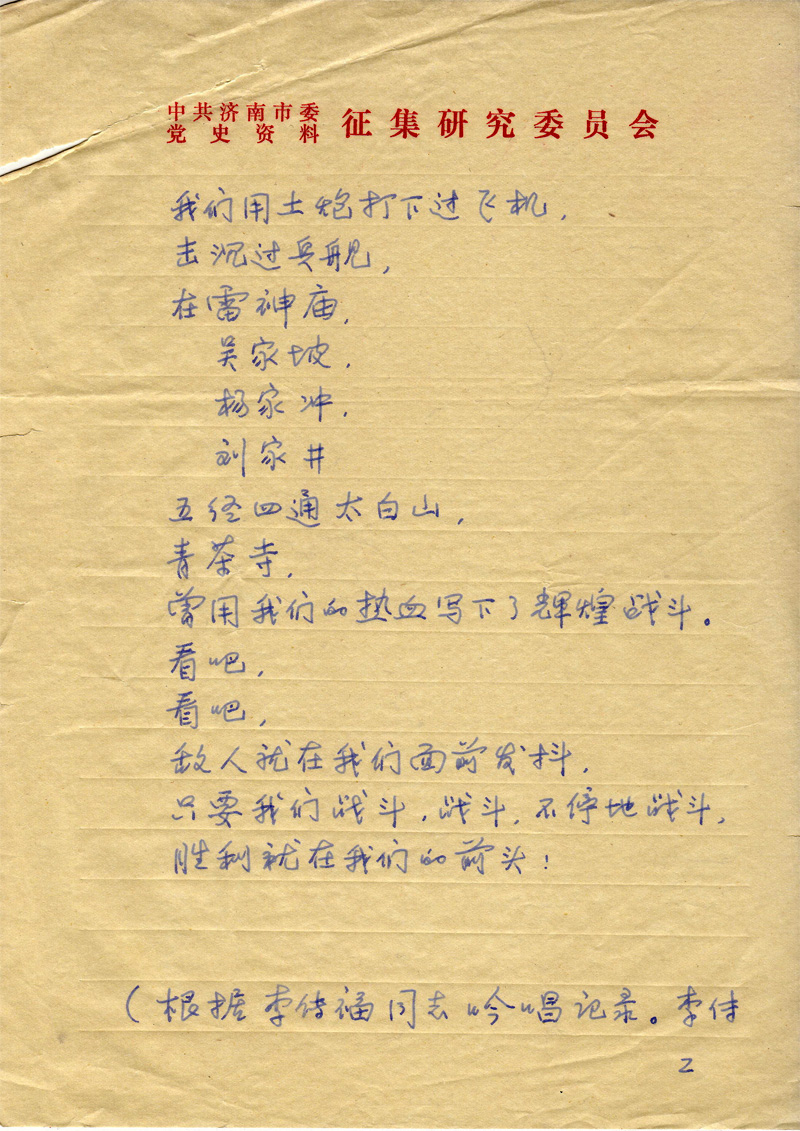 中共济南市委
党史资料 征集研究委员会
我们用土炮打下过飞机，
击沉过兵舰，
在雷神庙，
吴家坡，
杨家冲，
刘家井
五径四通太白山，
青茶寺，
曾用我们的热血写下了辉煌战斗。
看吧，
看吧，
敌人就在我们面前发抖，
只要我们战斗，战斗，不停地战斗，
胜利就在我们的前头！
（根据李传福同志吟唱记录。李传
2